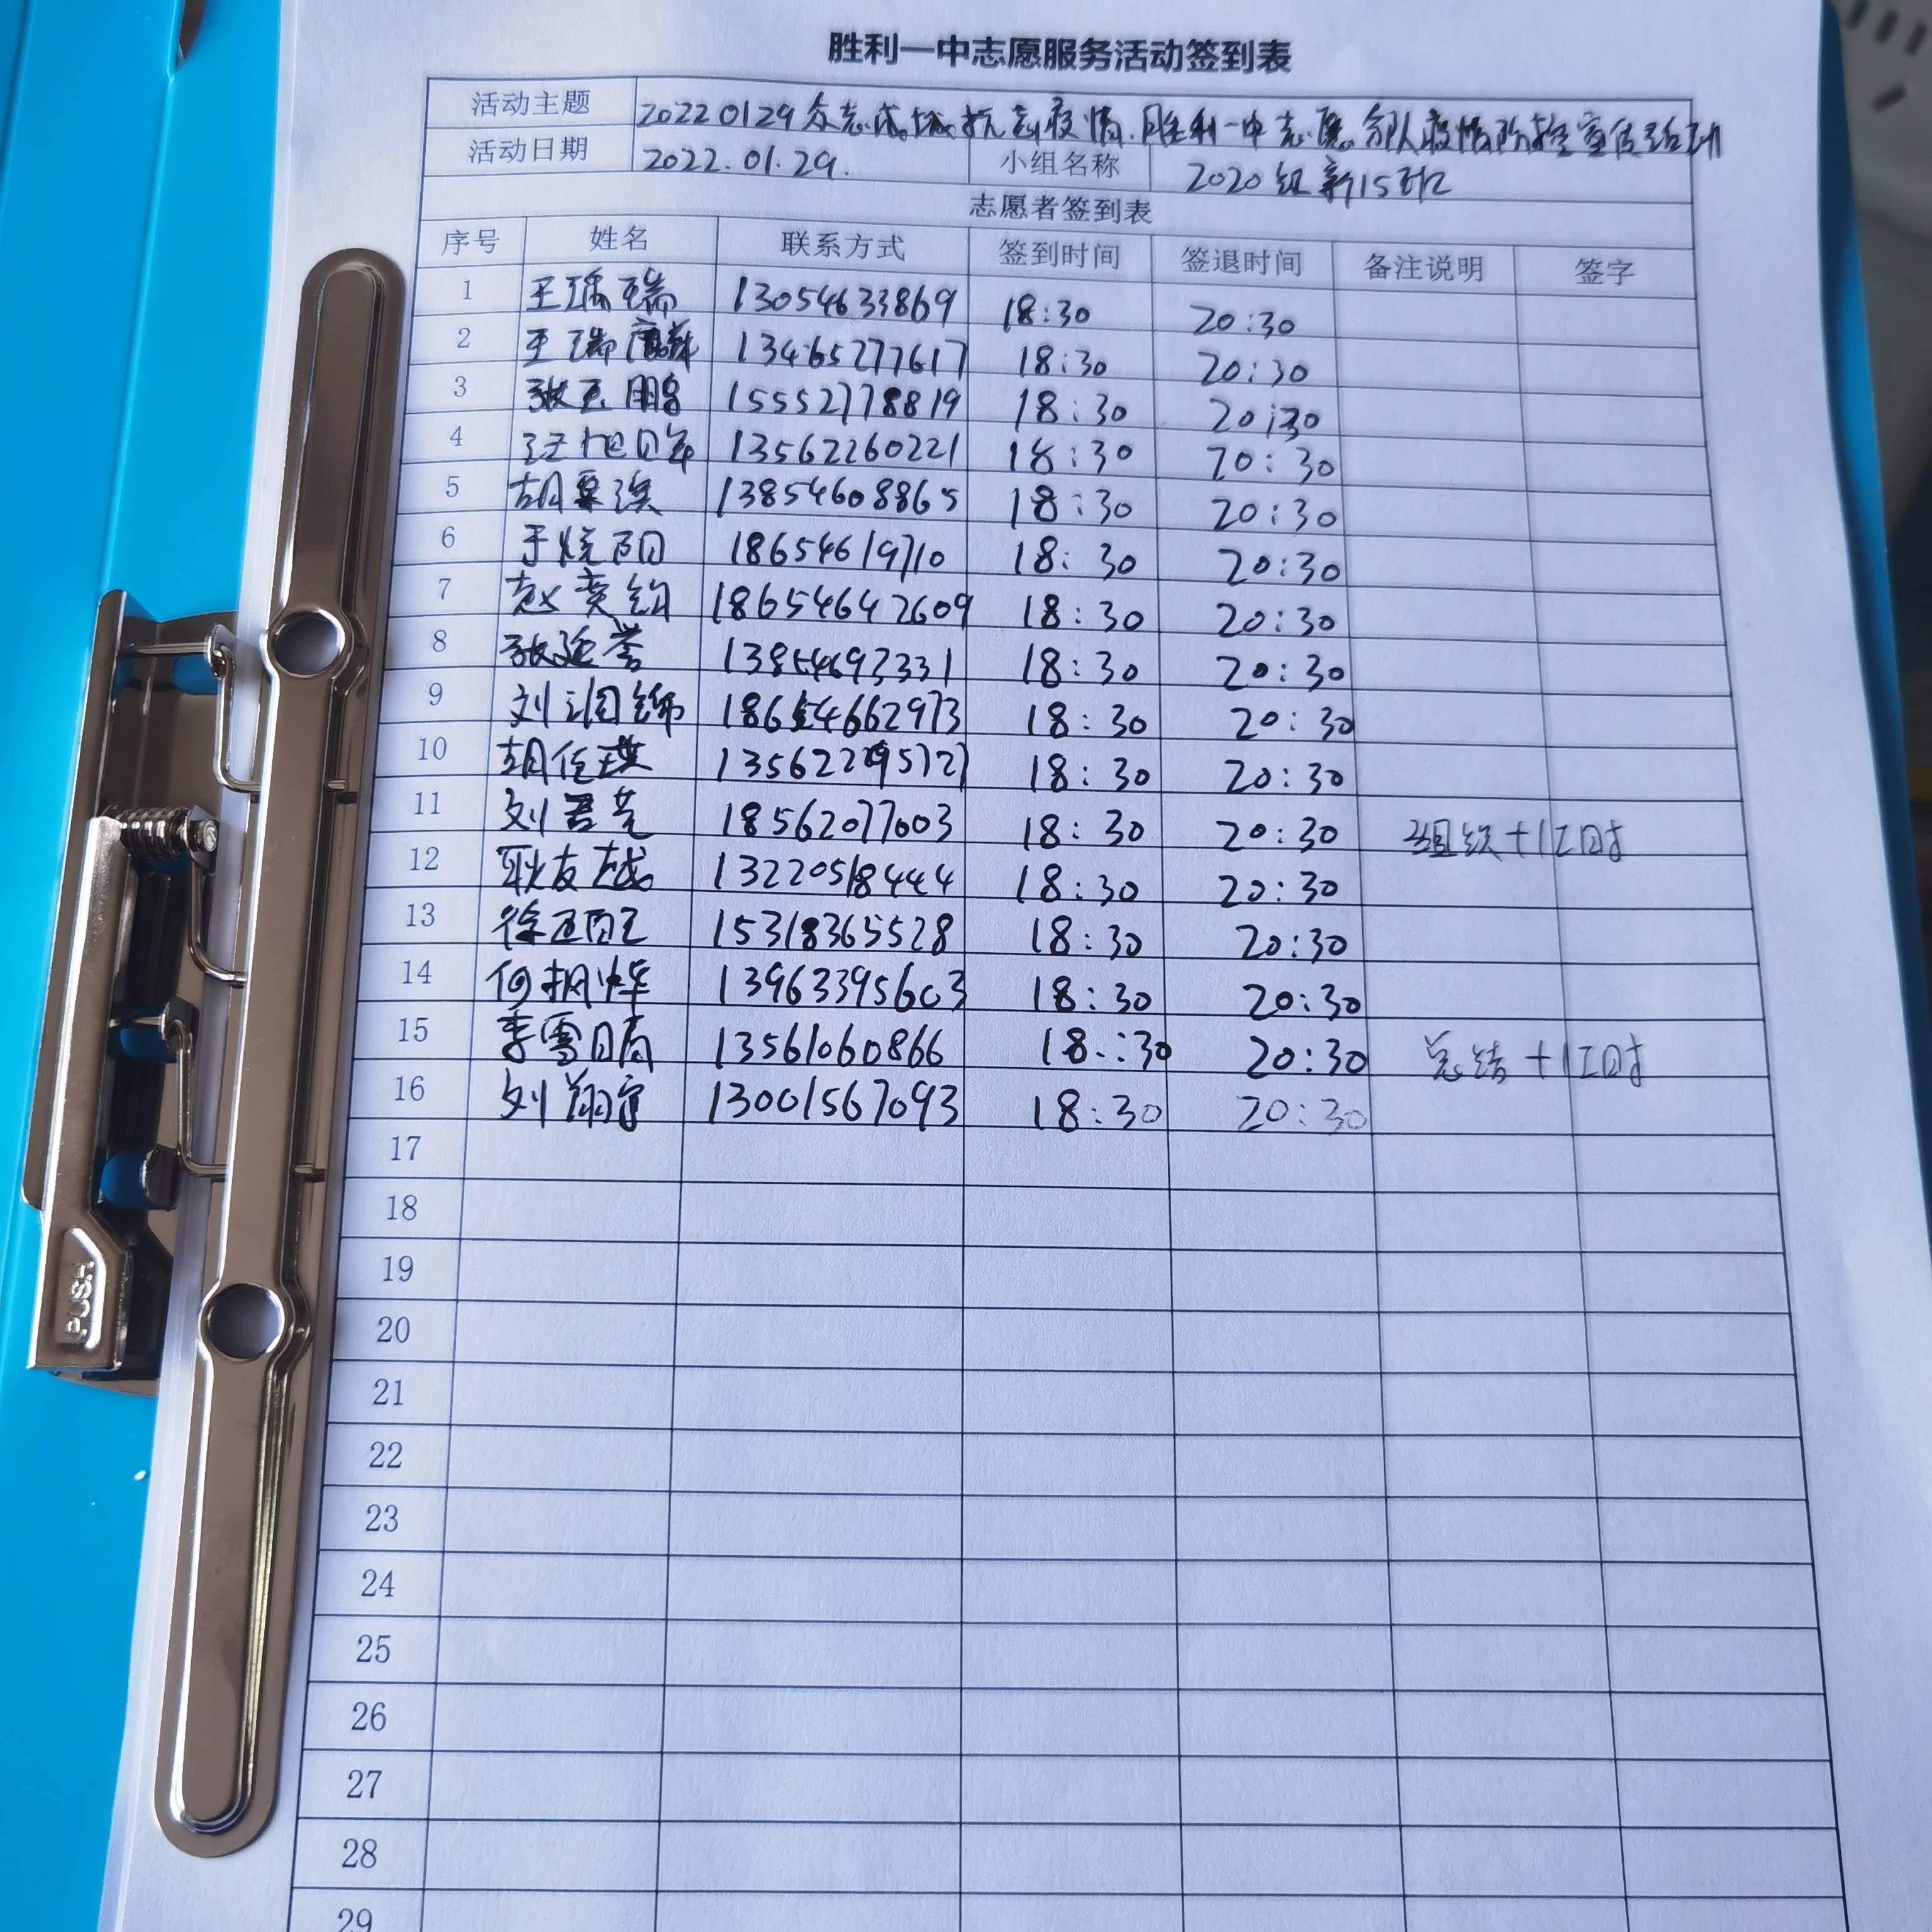 胜利一中志愿服务活动签到表
活动主题 20220129众志成城抗击疫情,胜利一中志愿部队疫情防控宣传活动
活动日期 2022.01.29. 小组名称 2020级新15班
志愿者签到表
序号 姓名 联系方式 签到时间 签退时间 备注说明 签字
1 王瑀瑞 13054633869 18:30 20:30
2 王瑞麟 13465277617 18:30 20:30
3 张玉鹏 15552778819 18:30 20:30
4 汪旭 13562260221 18:30 20:30
5 胡栗溪 13854608865 18:30 20:30
6 于烧阳 18654619710 18:30 20:30
7 赵奕钧 18654642609 18:30 20:30
8 张延誉 13854692331 18:30 20:30
9 刘润锦 18654662973 18:30 20:30
10 胡任琪 18:30 20:30
11 刘君艺 18562077003 18:30 20:30 组织+1工时
12 耿友越 13220518444 18:30 20:30
13 徐 15318365528 18:30 20:30
14 何枫烨 13963395603 18:30 20:30
15 季雪晴 13561060866 18:30 20:30 总结+1工时
16 刘翔宇 13001567093 18:30 20:30
17
18
19
20
21
22
23
24
25
26
27
28
29
PUSH